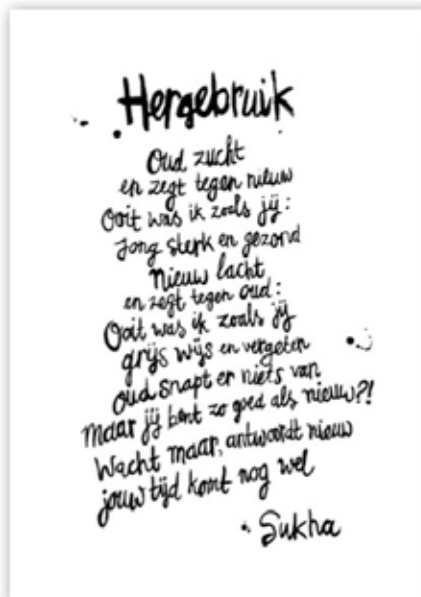 Hergebruik
Oud zucht
en zegt tegen nieuw
Ooit was ik zoals jij:
Jong sterk en gezond
Nieuw lacht
en zegt tegen oud:
Ooit was ik zoals jij
grijs wijs en vergeten
oud snapt er niets van
Maar jij bent zo goed als nieuw?!
Wacht maar, antwoordt nieuw
jouw tijd komt nog wel
Sukha